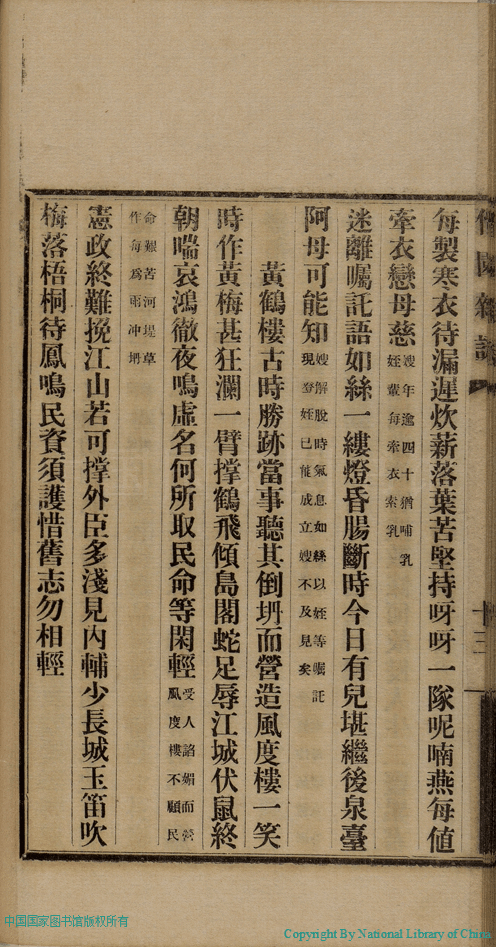 園雜
十三
每製寒衣待漏遲炊薪落葉苦堅持呀呀一隊呢喃燕每值
牽衣戀母慈
嫂年逾四十猶哺乳
姪輩每牽衣索乳
迷離囑託語如絲一縷燈昏腸斷時今日有兒堪繼後泉臺
阿母可能知
嫂解脫時氣息如絲以姪等囑託
現登姪已能成立嫂不及見矣
黃鶴樓古時勝跡當事聽其倒坍而營造風度樓一笑
時作黃梅甚狂瀾一臂撐鶴飛傾島閣蛇足辱江城伏鼠終
朝喘哀鴻徹夜鳴虛名何所取民命等閑輕
受人諂媚而營
風度樓不顧民
命艱苦河堤草
作句為雨冲坍
憲政終難挽江山若可撐外臣多淺見內輔少長城玉笛吹
梅落梧桐待鳳鳴民資須護惜舊志勿相輕
中国国家图书馆版权所有
Copyright By National Library of China